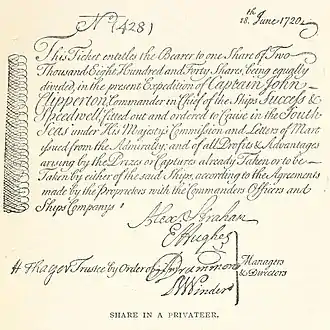 No. (428)
18.th June 1720
This Ticket entitles the Bearer to one Share of Two
Thousand Eight Hundred and Forty Shares, being equally
divided, in the present Expedition of Captain John
Clipperton Commander in Chief of the Ships Success &
Speedwell, fitted out and ordered to Cruise in the South
Seas under His Majesty's Commission and Letters of Mart
issued from the Admiralty; and of all Profits & Advantages
arising by the Prizes or Captures already Taken or to be
Taken by either of the said Ships, according to the Agreements
made by the Proprietors with the Commanders Officers and
Ships Companys
Alex Strahan
E Hughes
H Thayer Trustee by Order of Drummond Managers
Winder & Directors
SHARE IN A PRIVATEER.